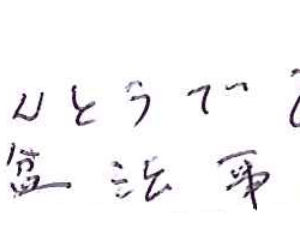 んとうで
盆法要